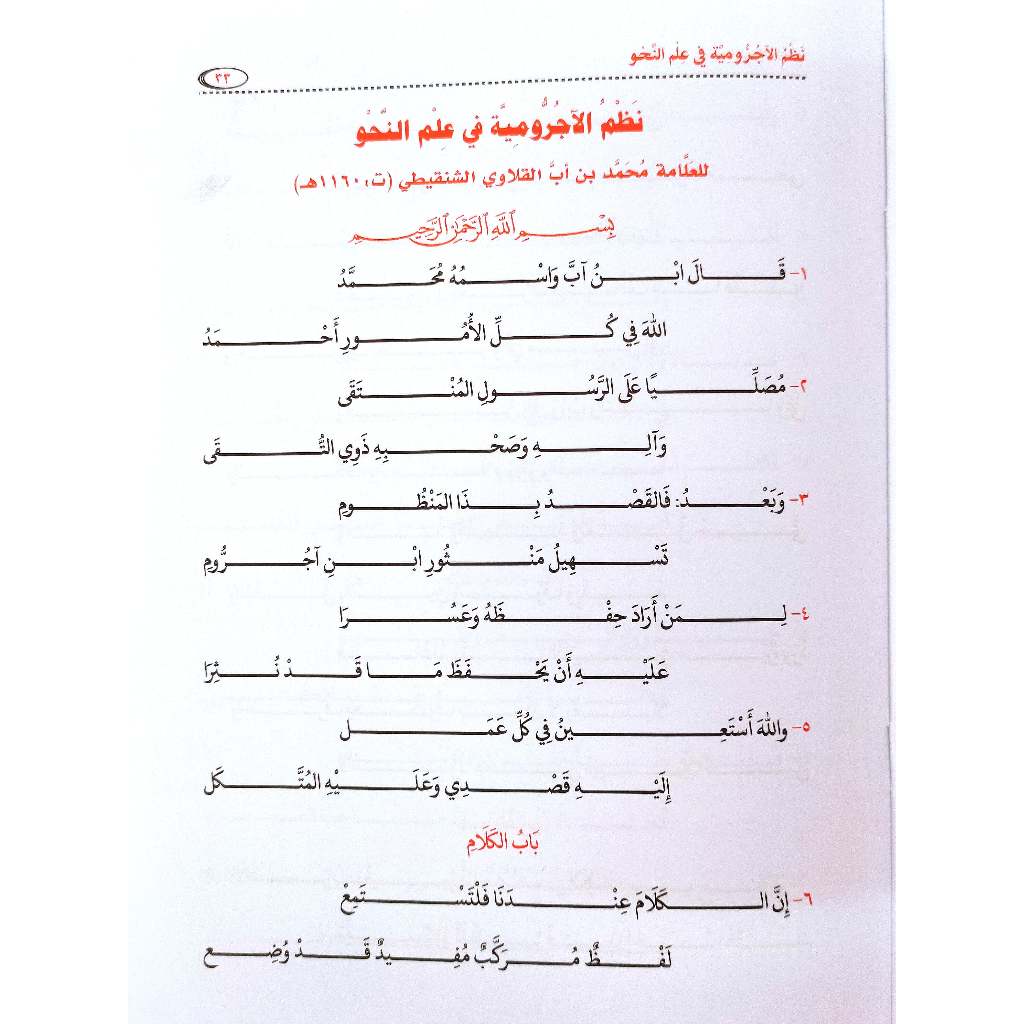 نَظْمُ الآجُرُّومِيَّة فِي عِلْم النَّحْو
٣٣
نَظْمُ الآجُرُّومِيَّة فِي عِلْم النَّحْو
للعَلَّامة مُحَمَّد بن أبَّ القلاوي الشنقيطي (ت، ١١٦٠هـ)
بِسْمِ اللَّهِ الرَّحْمَٰنِ الرَّحِيمِ
١- قَالَ ابْنُ آبَّ وَاسْمُهُ مُحَمَّدُ
اللهَ فِي كُلِّ الأُمُورِ أَحْمَدُ
٢- مُصَلِّيًا عَلَى الرَّسُولِ المُنْتَقَى
وَآلِهِ وَصَحْبِهِ ذَوِي التُّقَى
٣- وَبَعْدُ: فَالقَصْدُ بِذَا المَنْظُومِ
تَسْهِيلُ مَنْثُورِ ابْنِ آجُرُّومِ
٤- لِمَنْ أَرَادَ حِفْظَهُ وَعَسُرَا
عَلَيْهِ أَنْ يَحْفَظَ مَا قَدْ نُثِرَا
٥- واللهَ أَسْتَعِينُ فِي كُلِّ عَمَل
إِلَيْهِ قَصْدِي وَعَلَيْهِ المُتَّكَل
بَابُ الكَلَامِ
٦- إِنَّ الكَلَامَ عِنْدَنَا فَلْتَسْتَمِعْ
لَفْظٌ مُرَكَّبٌ مُفِيدٌ قَدْ وُضِع